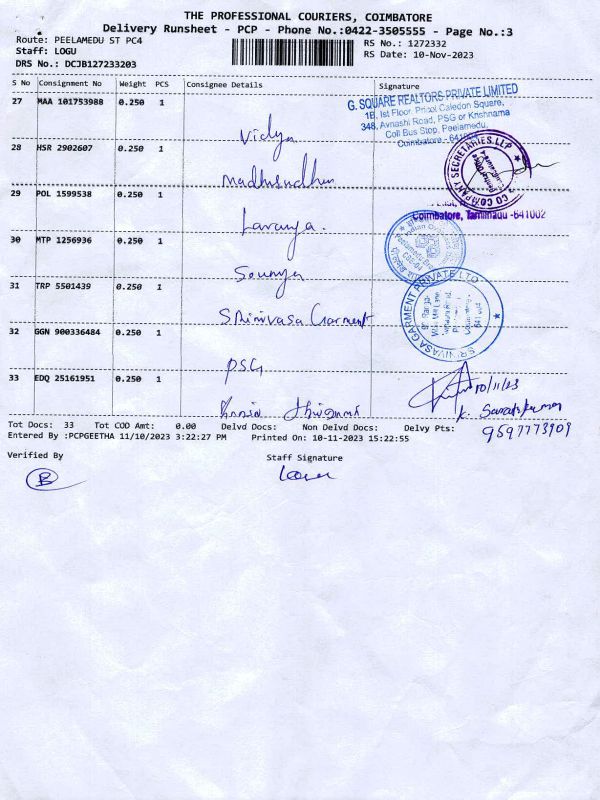 THE PROFESSIONAL COURIERS, COIMBATORE
Delivery Runsheet - PCP - Phone No.:0422-3505555 - Page No.:3
Route: PEELAMEDU ST PC4
RS No.: 1272332
Staff: LOGU
RS Date: 10-Nov-2023
DRS No.: DCJB127233203
S No Consignment No Weight PCS Consignee Details Signature
27 MAA 101753988 0.250 1
G. SQUARE REALTORS PRIVATE LIMITED
1B, Ist Floor, Pricol Caledon Square,
348, Avnashi Road, PSG or Krishnama
Coll Bus Stop, Peelamedu,
Coimbatore - 6410
Vidya
28 HSR 2902607 0.250 1
CO COMPANY SECRETARIES LLP
Madhusudhan
29 POL 1599538 0.250 1
Coimbatore, Tamilnadu -641002
Lavanya.
30 MTP 1256936 0.250 1
Sounya
31 TRP 5501439 0.250 1
SRINIVASA GARMENT PRIVATE LTD
Srinivasa Garment
32 GGN 900336484 0.250 1
PSG
33 EDQ 25161951 0.250 1
10/11/23
K.
9597773909
Tot Docs: 33 Tot COD Amt: 0.00 Delvd Docs: Non Delvd Docs: Delvy Pts:
Entered By :PCPGEETHA 11/10/2023 3:22:27 PM Printed On: 10-11-2023 15:22:55
Verified By
Staff Signature
B